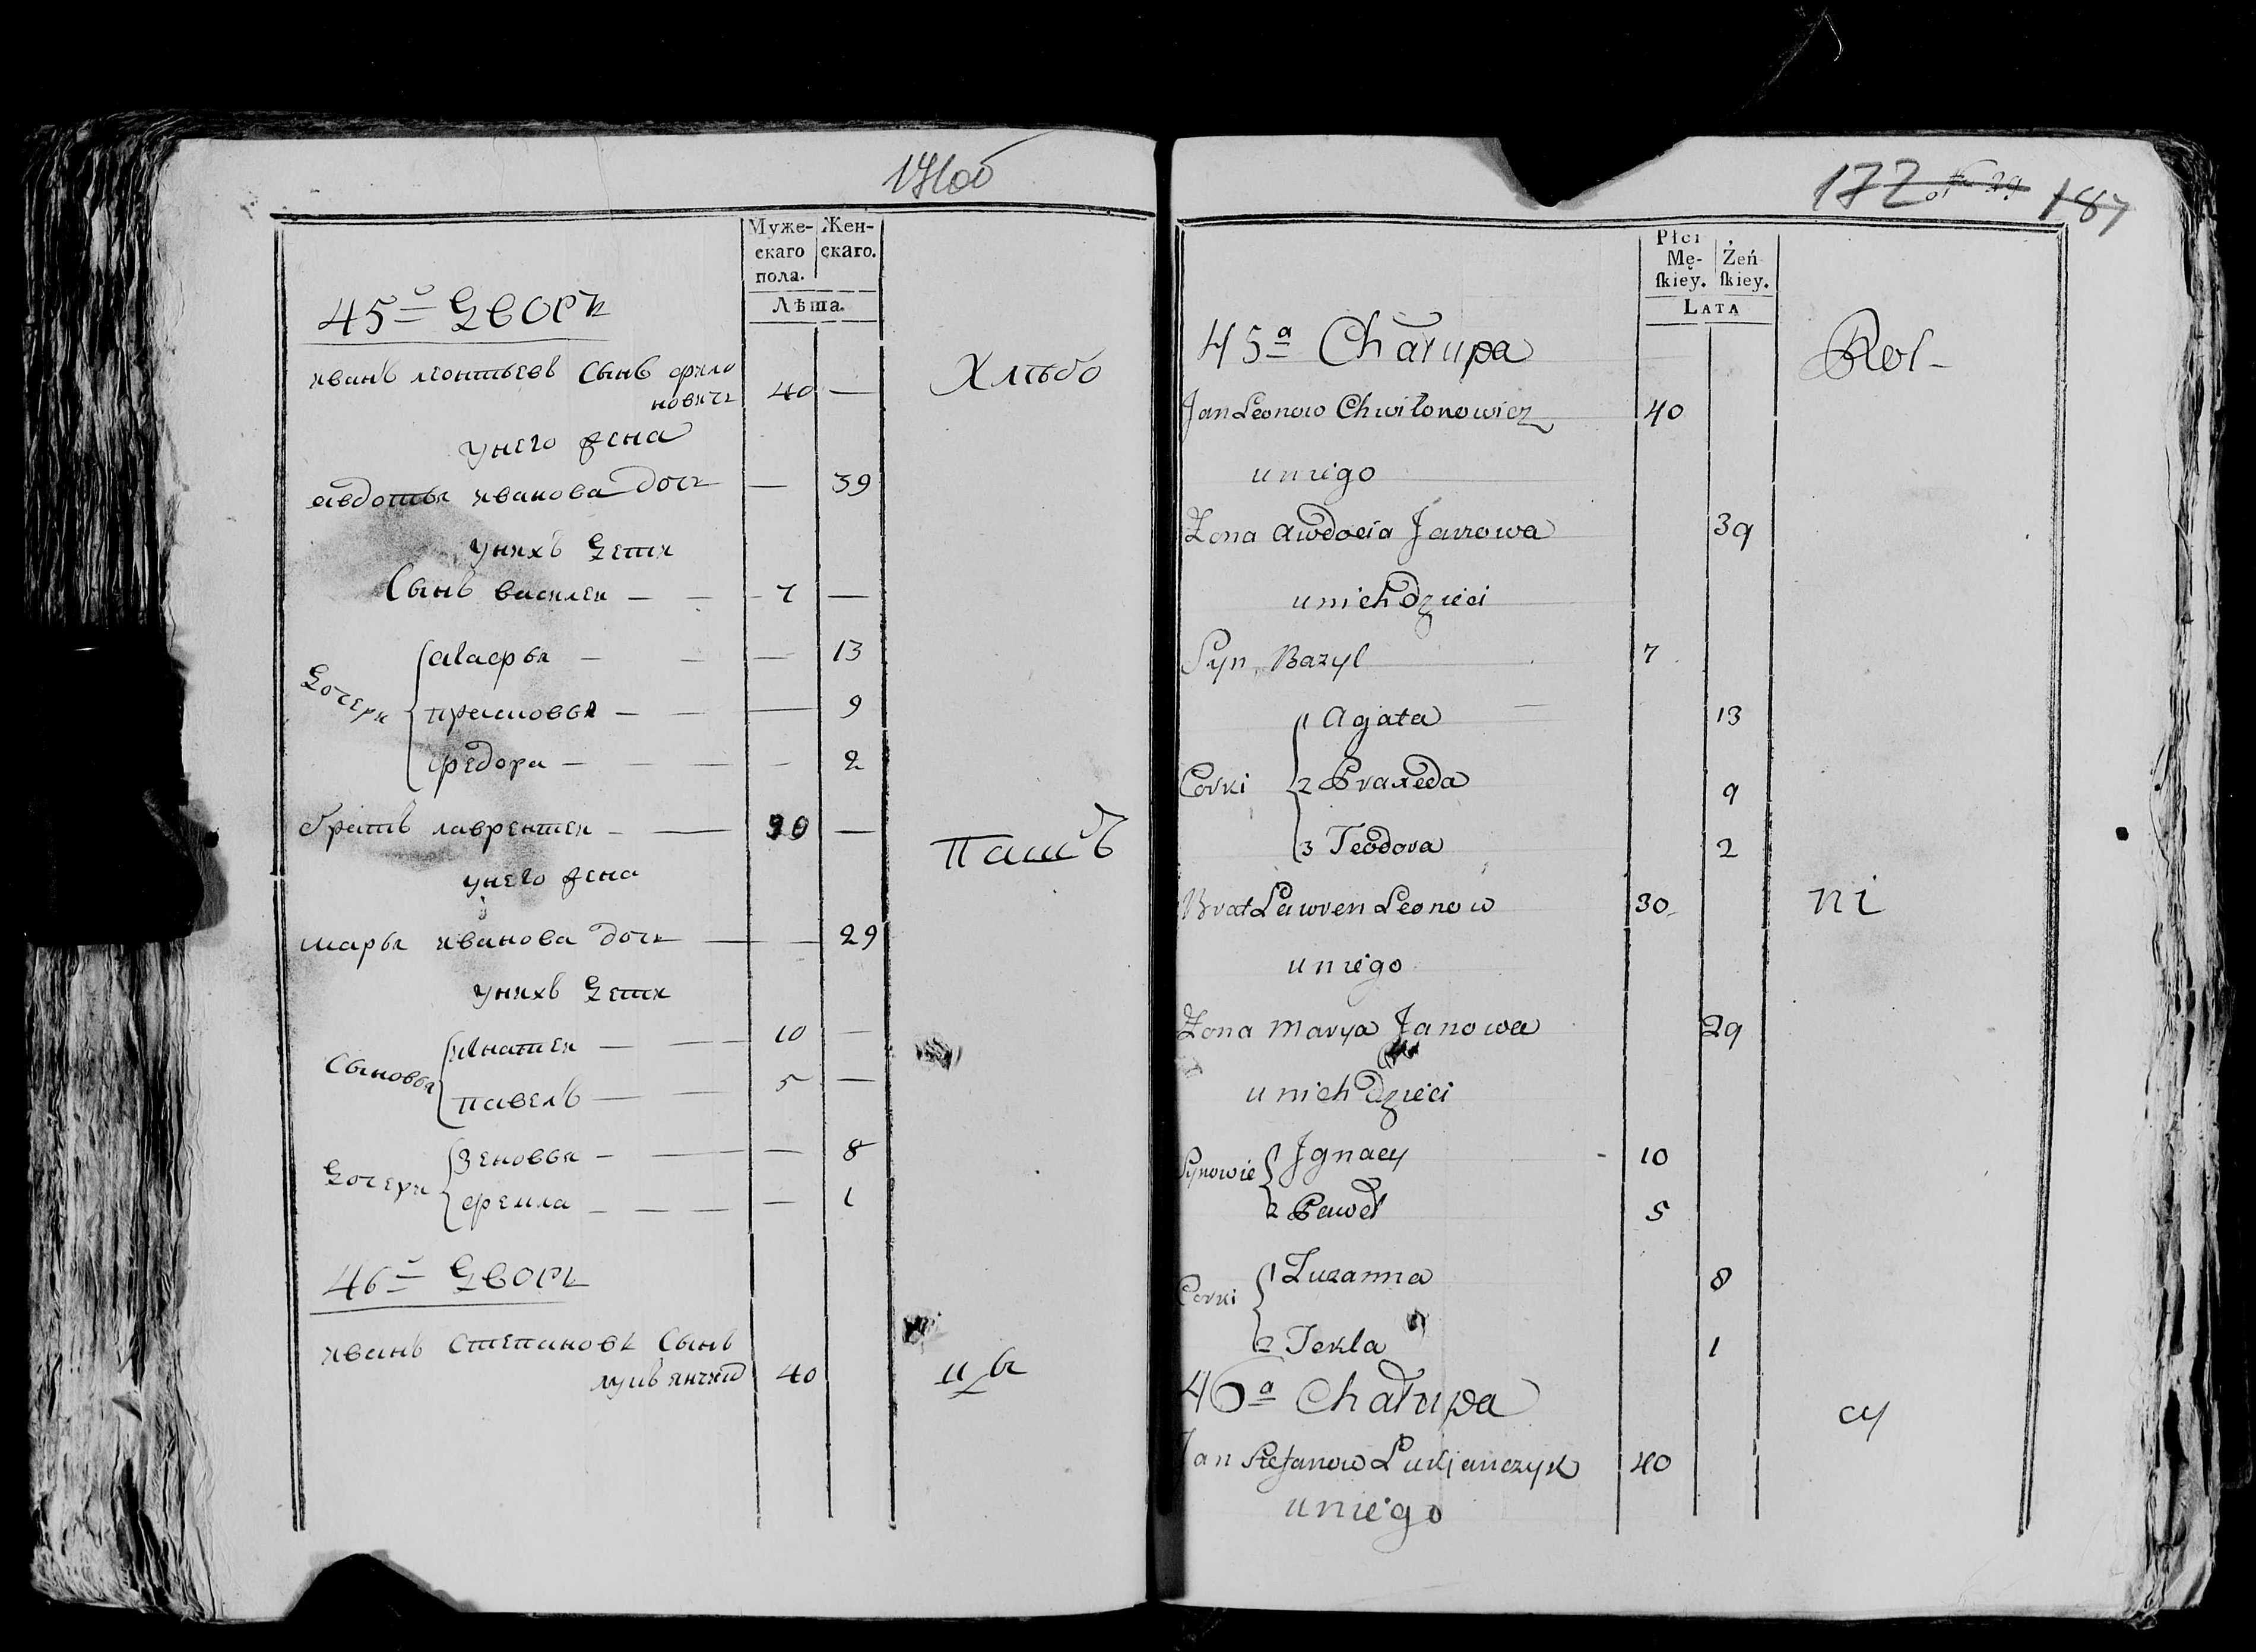 171об
Муже- Жен-
скаго скаго.
пола.
Лѣта.
45й дворъ
иванъ леонтьевъ сынъ фило
новичъ 40 —
Хлѣбо
унего жена
авдотья иванова дочь — 39
унихъ дети
Сынъ василеи — — 7 —
дочери
агафья — — — 13
прасковья — — — 9
федора — — — — 2
братъ лаврентеи — — 30 —
Пашъ
унего жена
марья иванова дочь — — 29
унихъ дети
Сыновья
игнатеи — — 10 —
павелъ — — 5 —
дочери
зеновья — — — 8
фекла — — — — 1
46й дворъ
иванъ степановъ сынъ
лукьянчик 40
цы
172 187
Płci
Mę- Żeń
ſkiey. ſkiey.
LATA
45a Chałupa
Rol-
Jan Leonow Chwiłonowicz 40
uniego
Żona Awdocia Janowa 39
unich dzieci
Syn Bazyl 7
Corki
1 Agata 13
2 Praxeda 9
3 Teodora 2
Brat Lawren Leonow 30
ni
uniego
Żona Marya Janowa 29
unich dzieci
Synowie
Jgnacy 10
2 Paweł 5
Corki
1 Zuzanna 8
2 Tekla 1
46a Chałupa
cy
Jan Stefanow Łukjanczyk 40
uniego